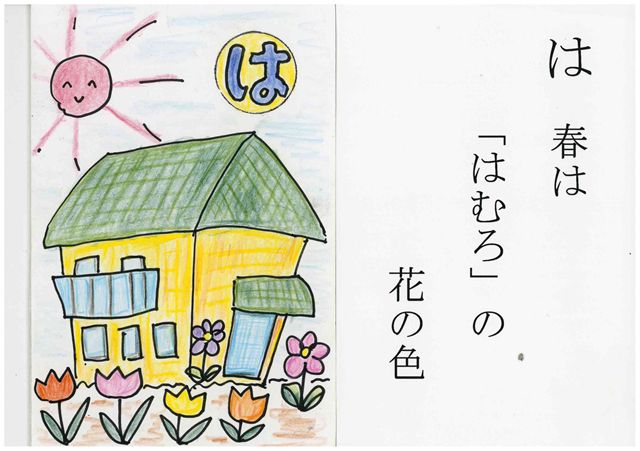 は
は 春は
「はむろ」の
花の色